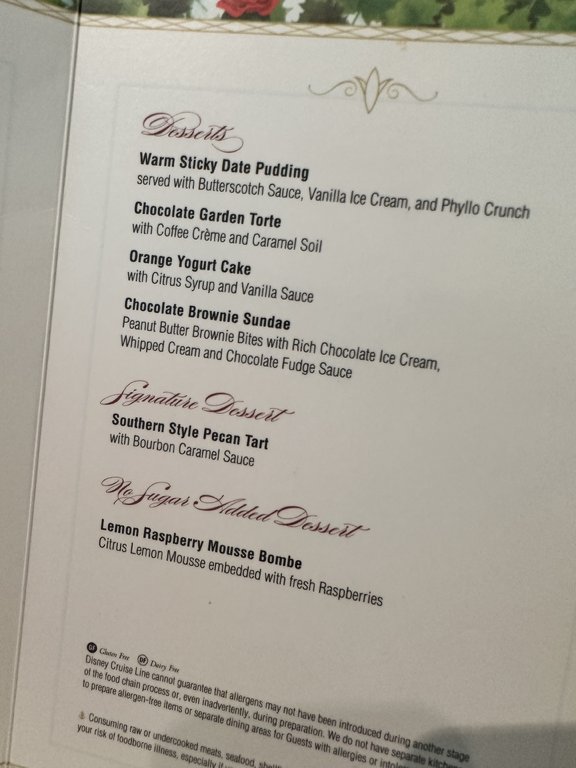 Desserts
Warm Sticky Date Pudding
served with Butterscotch Sauce, Vanilla Ice Cream, and Phyllo Crunch
Chocolate Garden Torte
with Coffee Crème and Caramel Soil
Orange Yogurt Cake
with Citrus Syrup and Vanilla Sauce
Chocolate Brownie Sundae
Peanut Butter Brownie Bites with Rich Chocolate Ice Cream,
Whipped Cream and Chocolate Fudge Sauce
Signature Dessert
Southern Style Pecan Tart
with Bourbon Caramel Sauce
No Sugar Added Dessert
Lemon Raspberry Mousse Bombe
Citrus Lemon Mousse embedded with fresh Raspberries
GF Gluten Free DF Dairy Free
Disney Cruise Line cannot guarantee that allergens may not have been introduced during another stage
of the food chain process or, even inadvertently, during preparation. We do not have separate
to prepare allergen-free items or separate dining areas for Guests with allergies or
Consuming raw or undercooked meats, seafood,
your risk of foodborne illness, especially